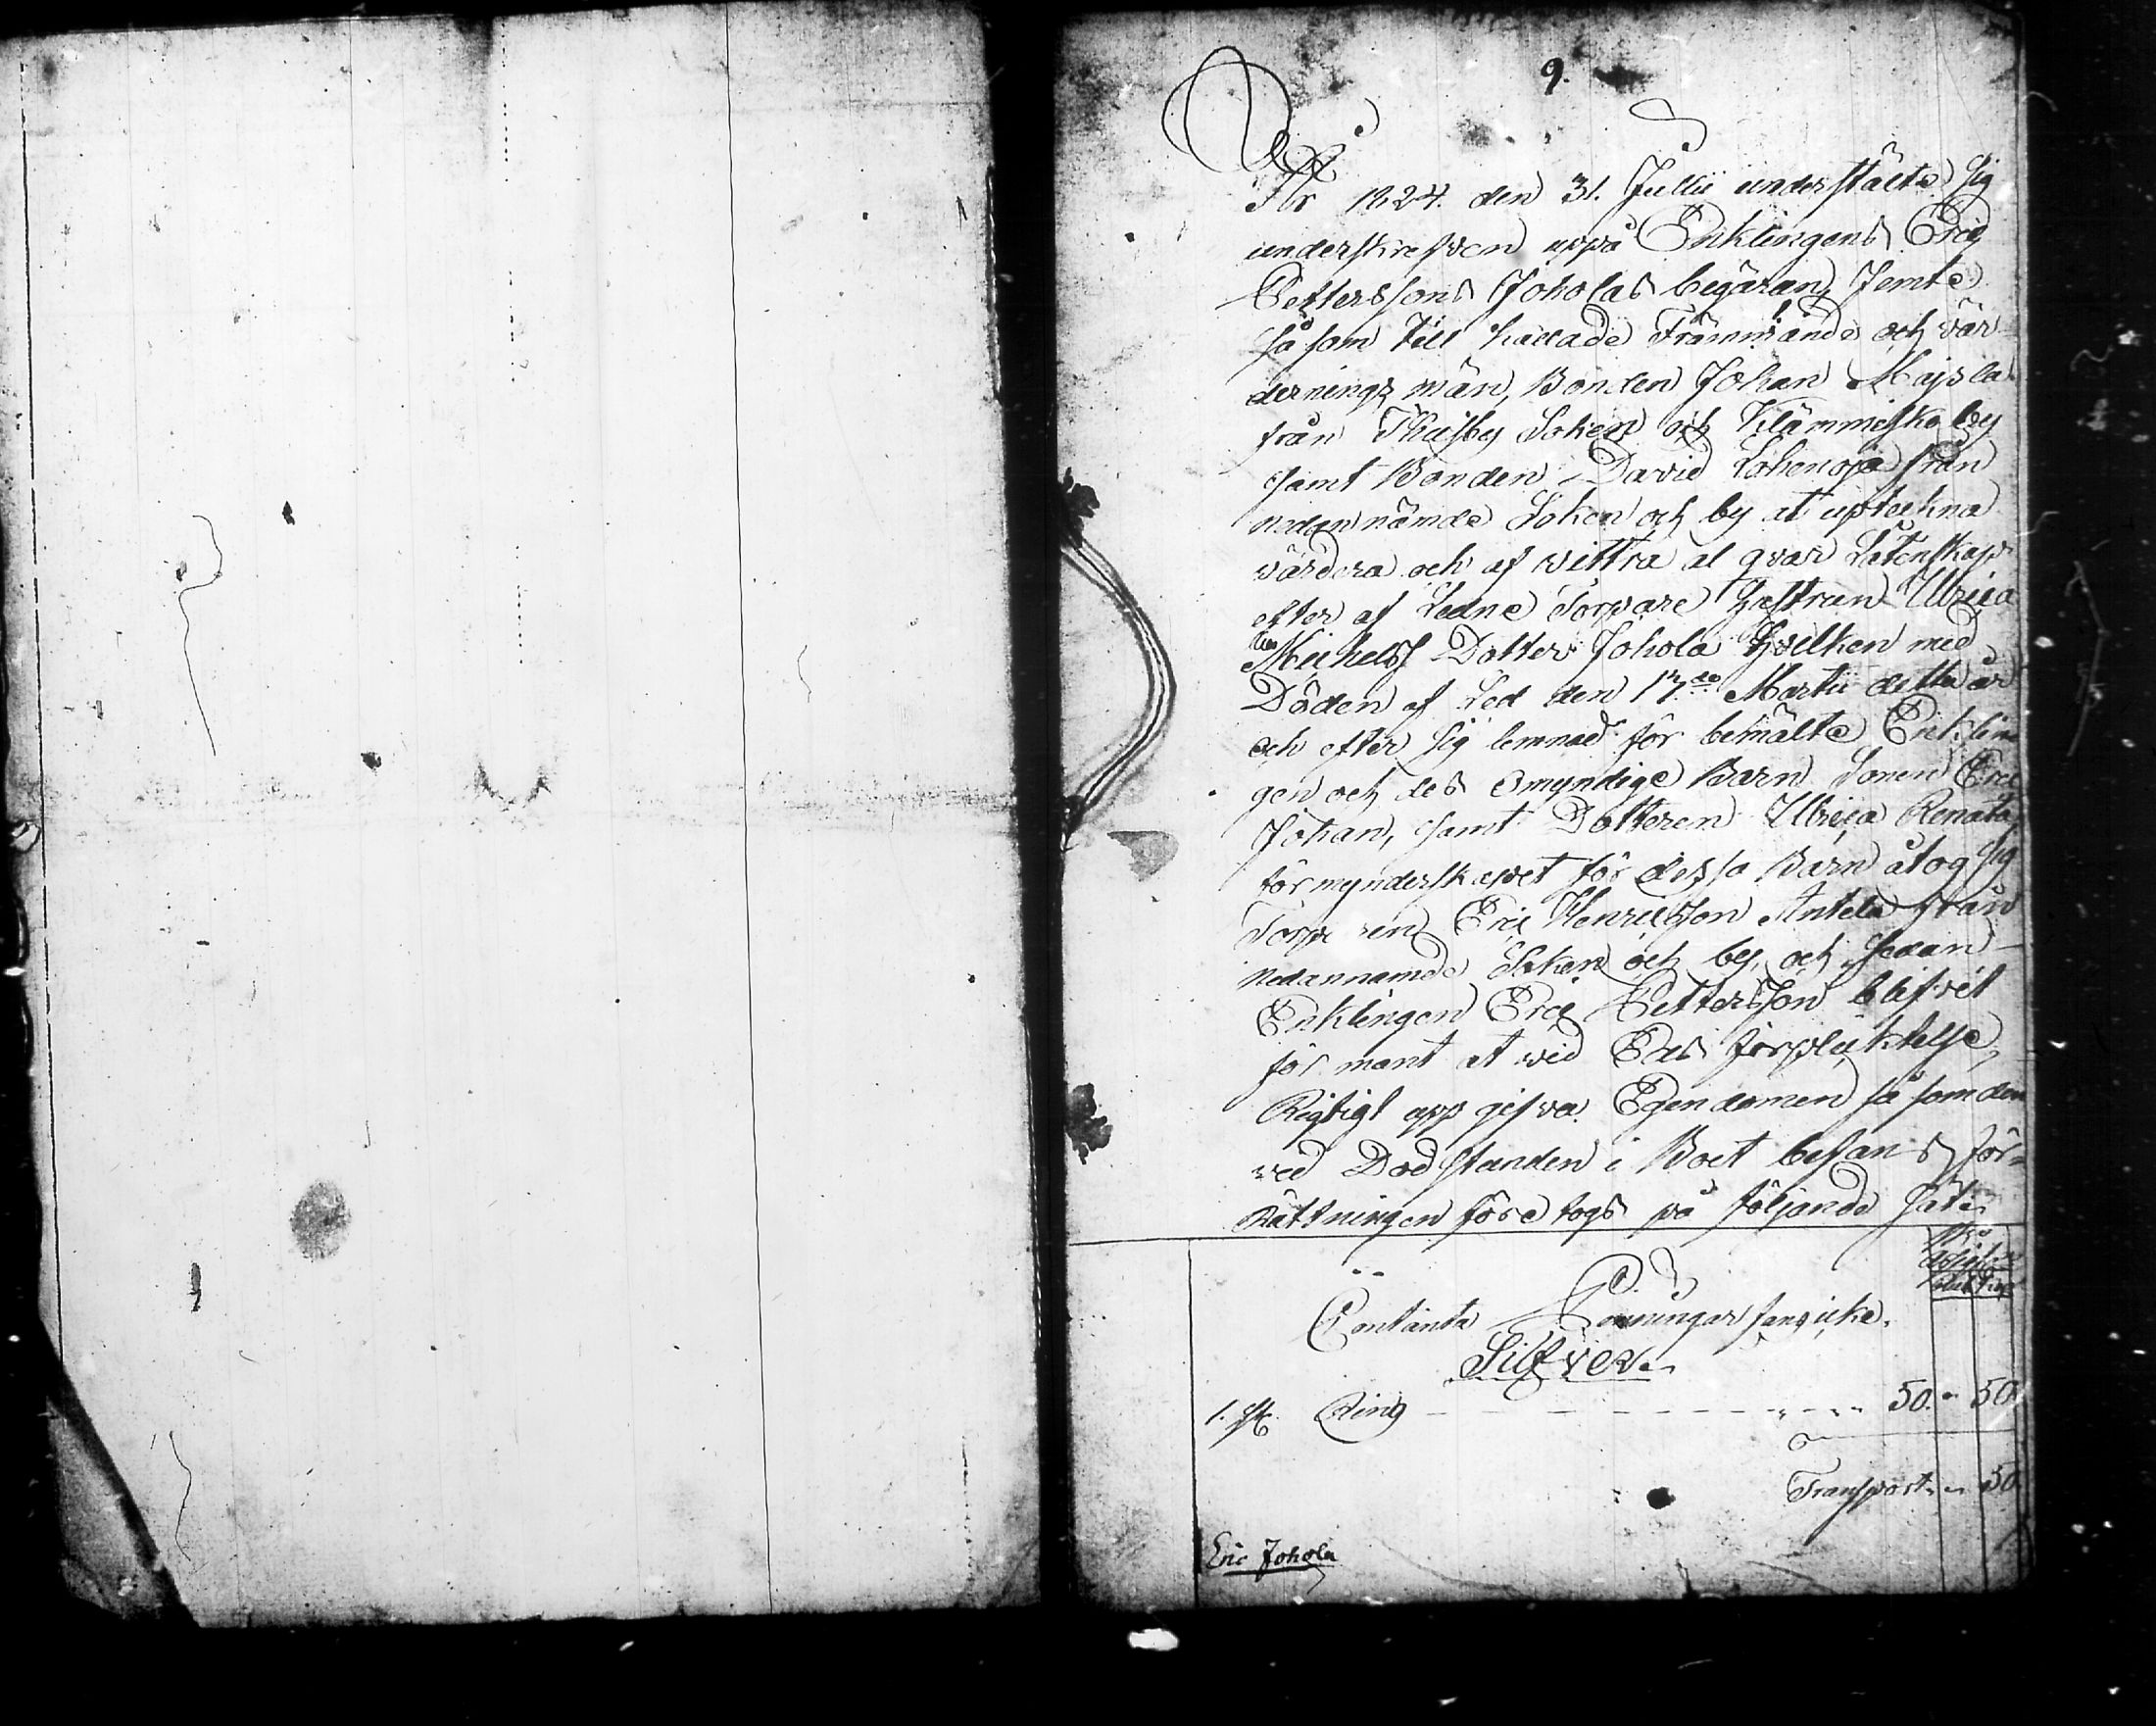 9.
År 1824. den 31. Julii inderstälte sig
underskrefven uppå Enklingens Eric
Pettersson Joholas begäran, Jemte
så som till kallade Främmande och vär-
dernings män, Bonden Johan Majsla
från Thusby Soken och Klämmisko by
samt Bonden David Lohenoja från
nedannämde Soken och by at uptekna
värdera och af vittra al qvar Låtenskap
efter af Ledne Torpare Hustrun Ulrica
Michels Dotter Johola Hvilken med
Döden af Led den 17de Martii detta år
och efter sig lemnad för bemälte Enklin
gen och des omyndige Barn Sonen Eric
Johan, samt Dotteren Ulrica Renata,
förmynderskapet för dessa Barn åtog sig
Torparen Eric Henricsson Antela från
nedannämde Soken och by, och sedan
Enklingen Eric Pettersson blifvit
förmant at wid Eds förpliktelse,
Rigtigt opp gifva Egendomen så som den
ved Dödstunden i Boet befans för-
Rättningen före togs på följande sätt
Contanta Penningar fans icke.
Silfver.
1. st. Ring - - - - 50. " 50
Transport " 50
Eric Johola